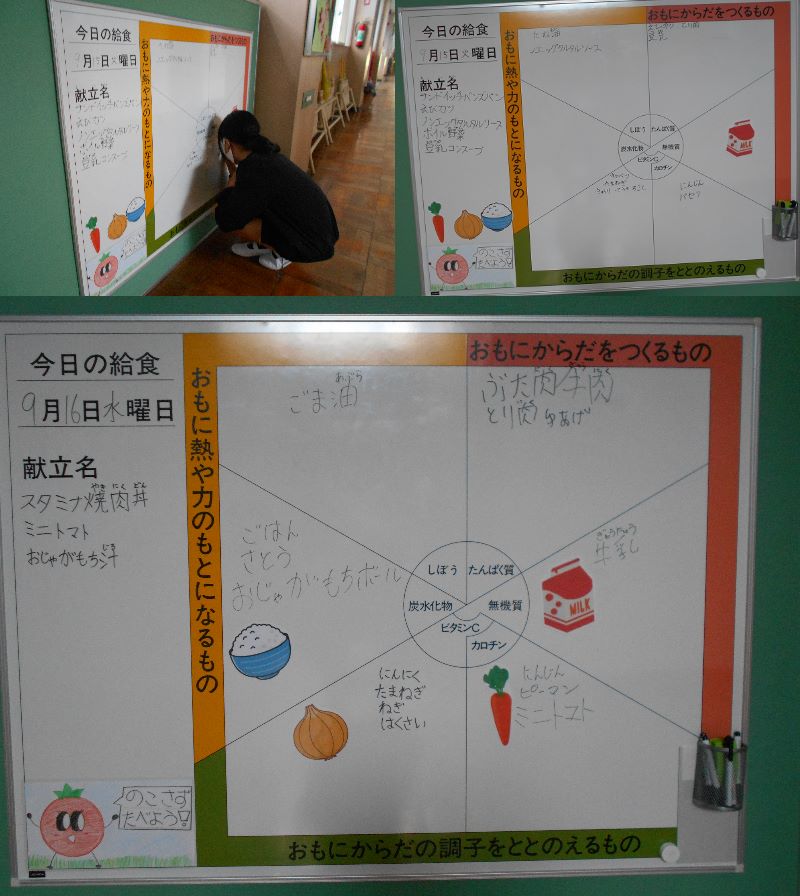 今日の給食
9月15日火曜日
献立名
サンドイッチバンズパン
えびカツ
ノンエッグタルタルソース
ボイル野菜
豆乳コンスープ
おもに熱や力のもとになるもの
おもにからだをつくるもの
ノンエッグタルタルソース
豆乳
しぼう
たんぱく質
炭水化物
無機質
ビタミンC
カロチン
MILK
キャベツ
たまねぎ
にんじん
パセリ
のこさず
たべよう!
おもにからだの調子をととのえるもの
今日の給食
9月16日水曜日
献立名
スタミナ焼肉丼
やき にく どん
ミニトマト
おじゃがもち汁
じる
おもに熱や力のもとになるもの
おもにからだをつくるもの
あぶら
ごま油
ぶた肉 牛肉
とり肉 ゆあげ
ごはん
さとう
おじゃがもちボール
ぎゅうにゅう
牛乳
しぼう
たんぱく質
炭水化物
無機質
ビタミンC
カロチン
MILK
にんにく
たまねぎ
ねぎ
はくさい
にんじん
ピーマン
ミニトマト
のこさず
たべよう!
おもにからだの調子をととのえるもの